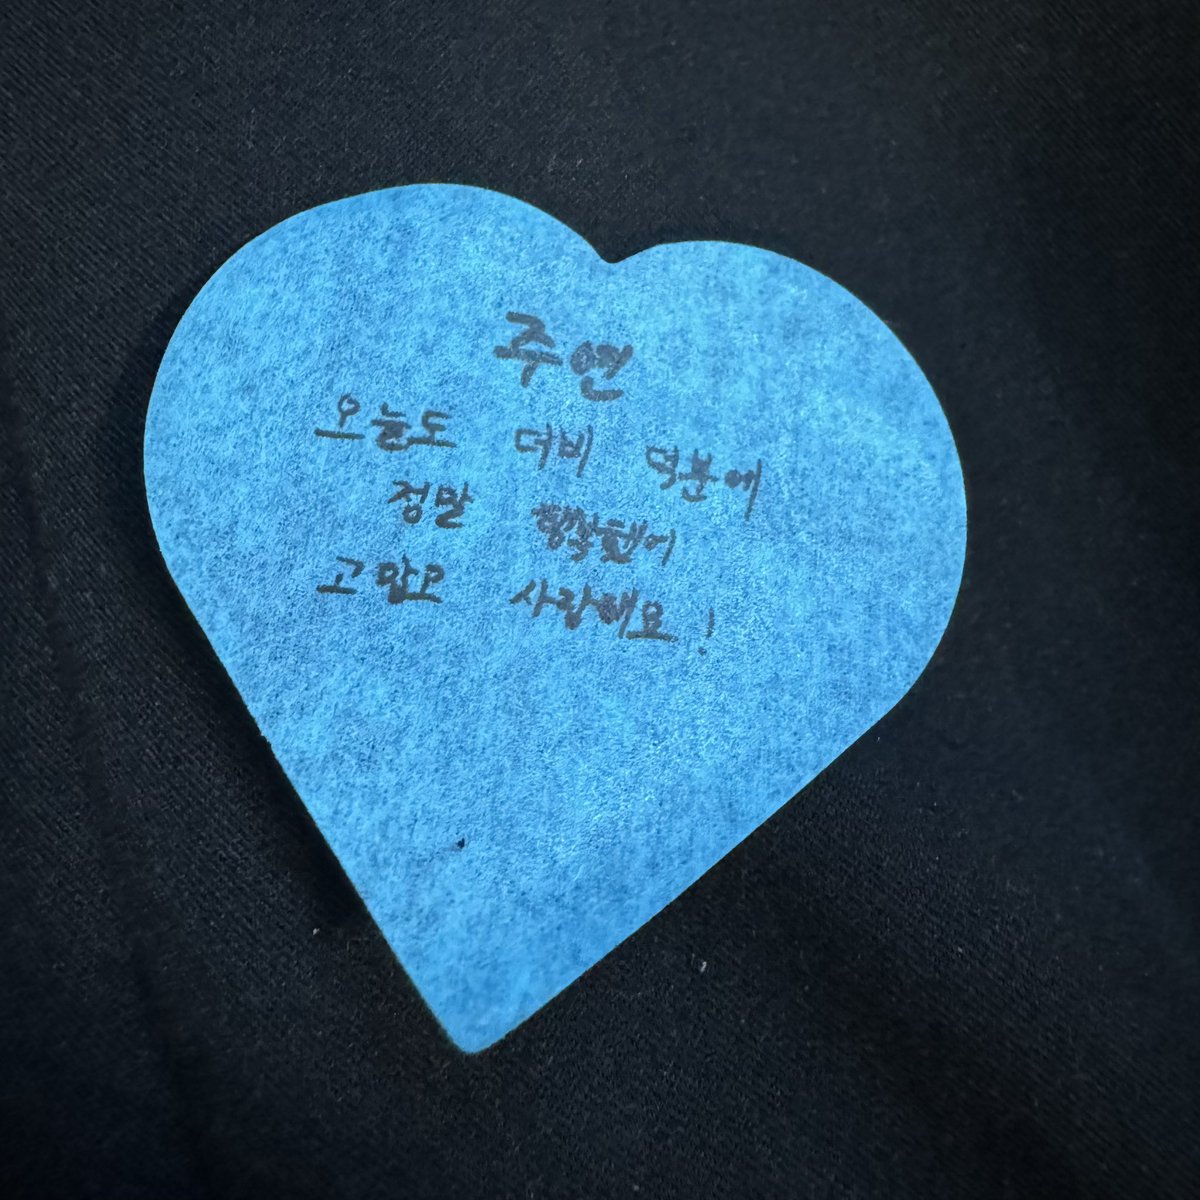 주연
오늘도 더비 덕분에
정말 행복했어
고맙고 사랑해요!